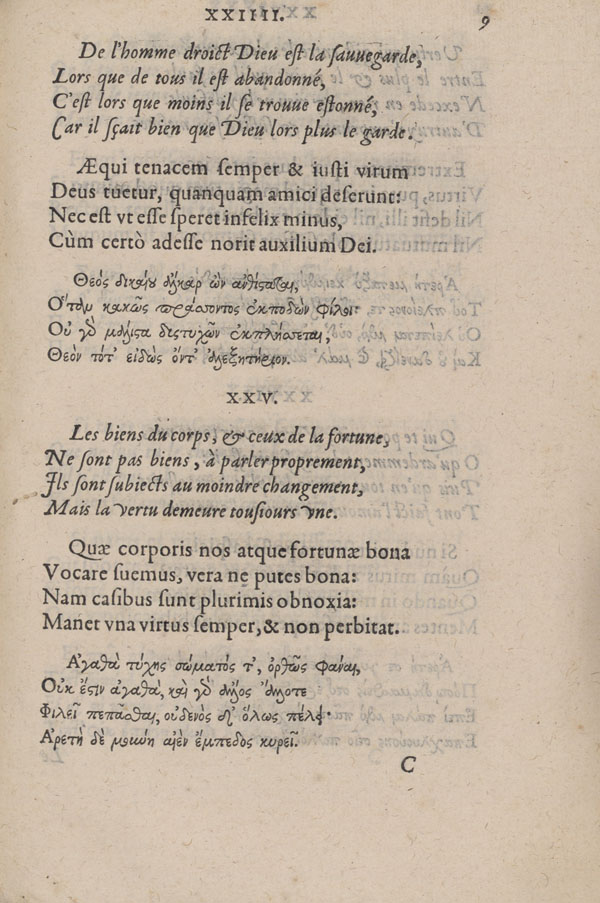 XXIIII. 9
De l'homme droict Dieu est la sauuegarde,
Lors que de tous il est abandonné,
C'est lors que moins il se trouue estonné,
Car il sçait bien que Dieu lors plus le garde.
Æqui tenacem semper & iusti virum
Deus tuetur, quanquam amici deserunt:
Nec est vt esse speret infelix minus,
Cùm certò adesse norit auxilium Dei.
Θεὸς δικαίου
Οὗτοι κακῶς πράσσοντος ἐκποδὼν φίλοι
Οὐ γὸ μάλιςα δυςτυχῶν ἐκπλήσσεται,
Θεὸν τότ' εἰδὼς ὄντ' ἀλεξητήριον.
XXV.
Les biens du corps, & ceux de la fortune,
Ne sont pas biens, à parler proprement,
Ils sont subiects au moindre changement,
Mais la vertu demeure tousiours vne.
Quæ corporis nos atque fortunæ bona
Vocare suemus, vera ne putes bona:
Nam casibus sunt plurimis obnoxia:
Manet vna virtus semper, & non perbitat.
Ἀγαθὰ τύχης σώματός τ', ὀρθῶς φάναι,
Οὐκ ἔςιν ἀγαθὰ, καὶ γὸ ἄλλος ἄλλοτε
Φιλεῖ οὐδενὸς δ' ὅλως
Ἀρετὴ δὲ μούνη αἰὲν ἔμπεδος κυρεῖ.
C